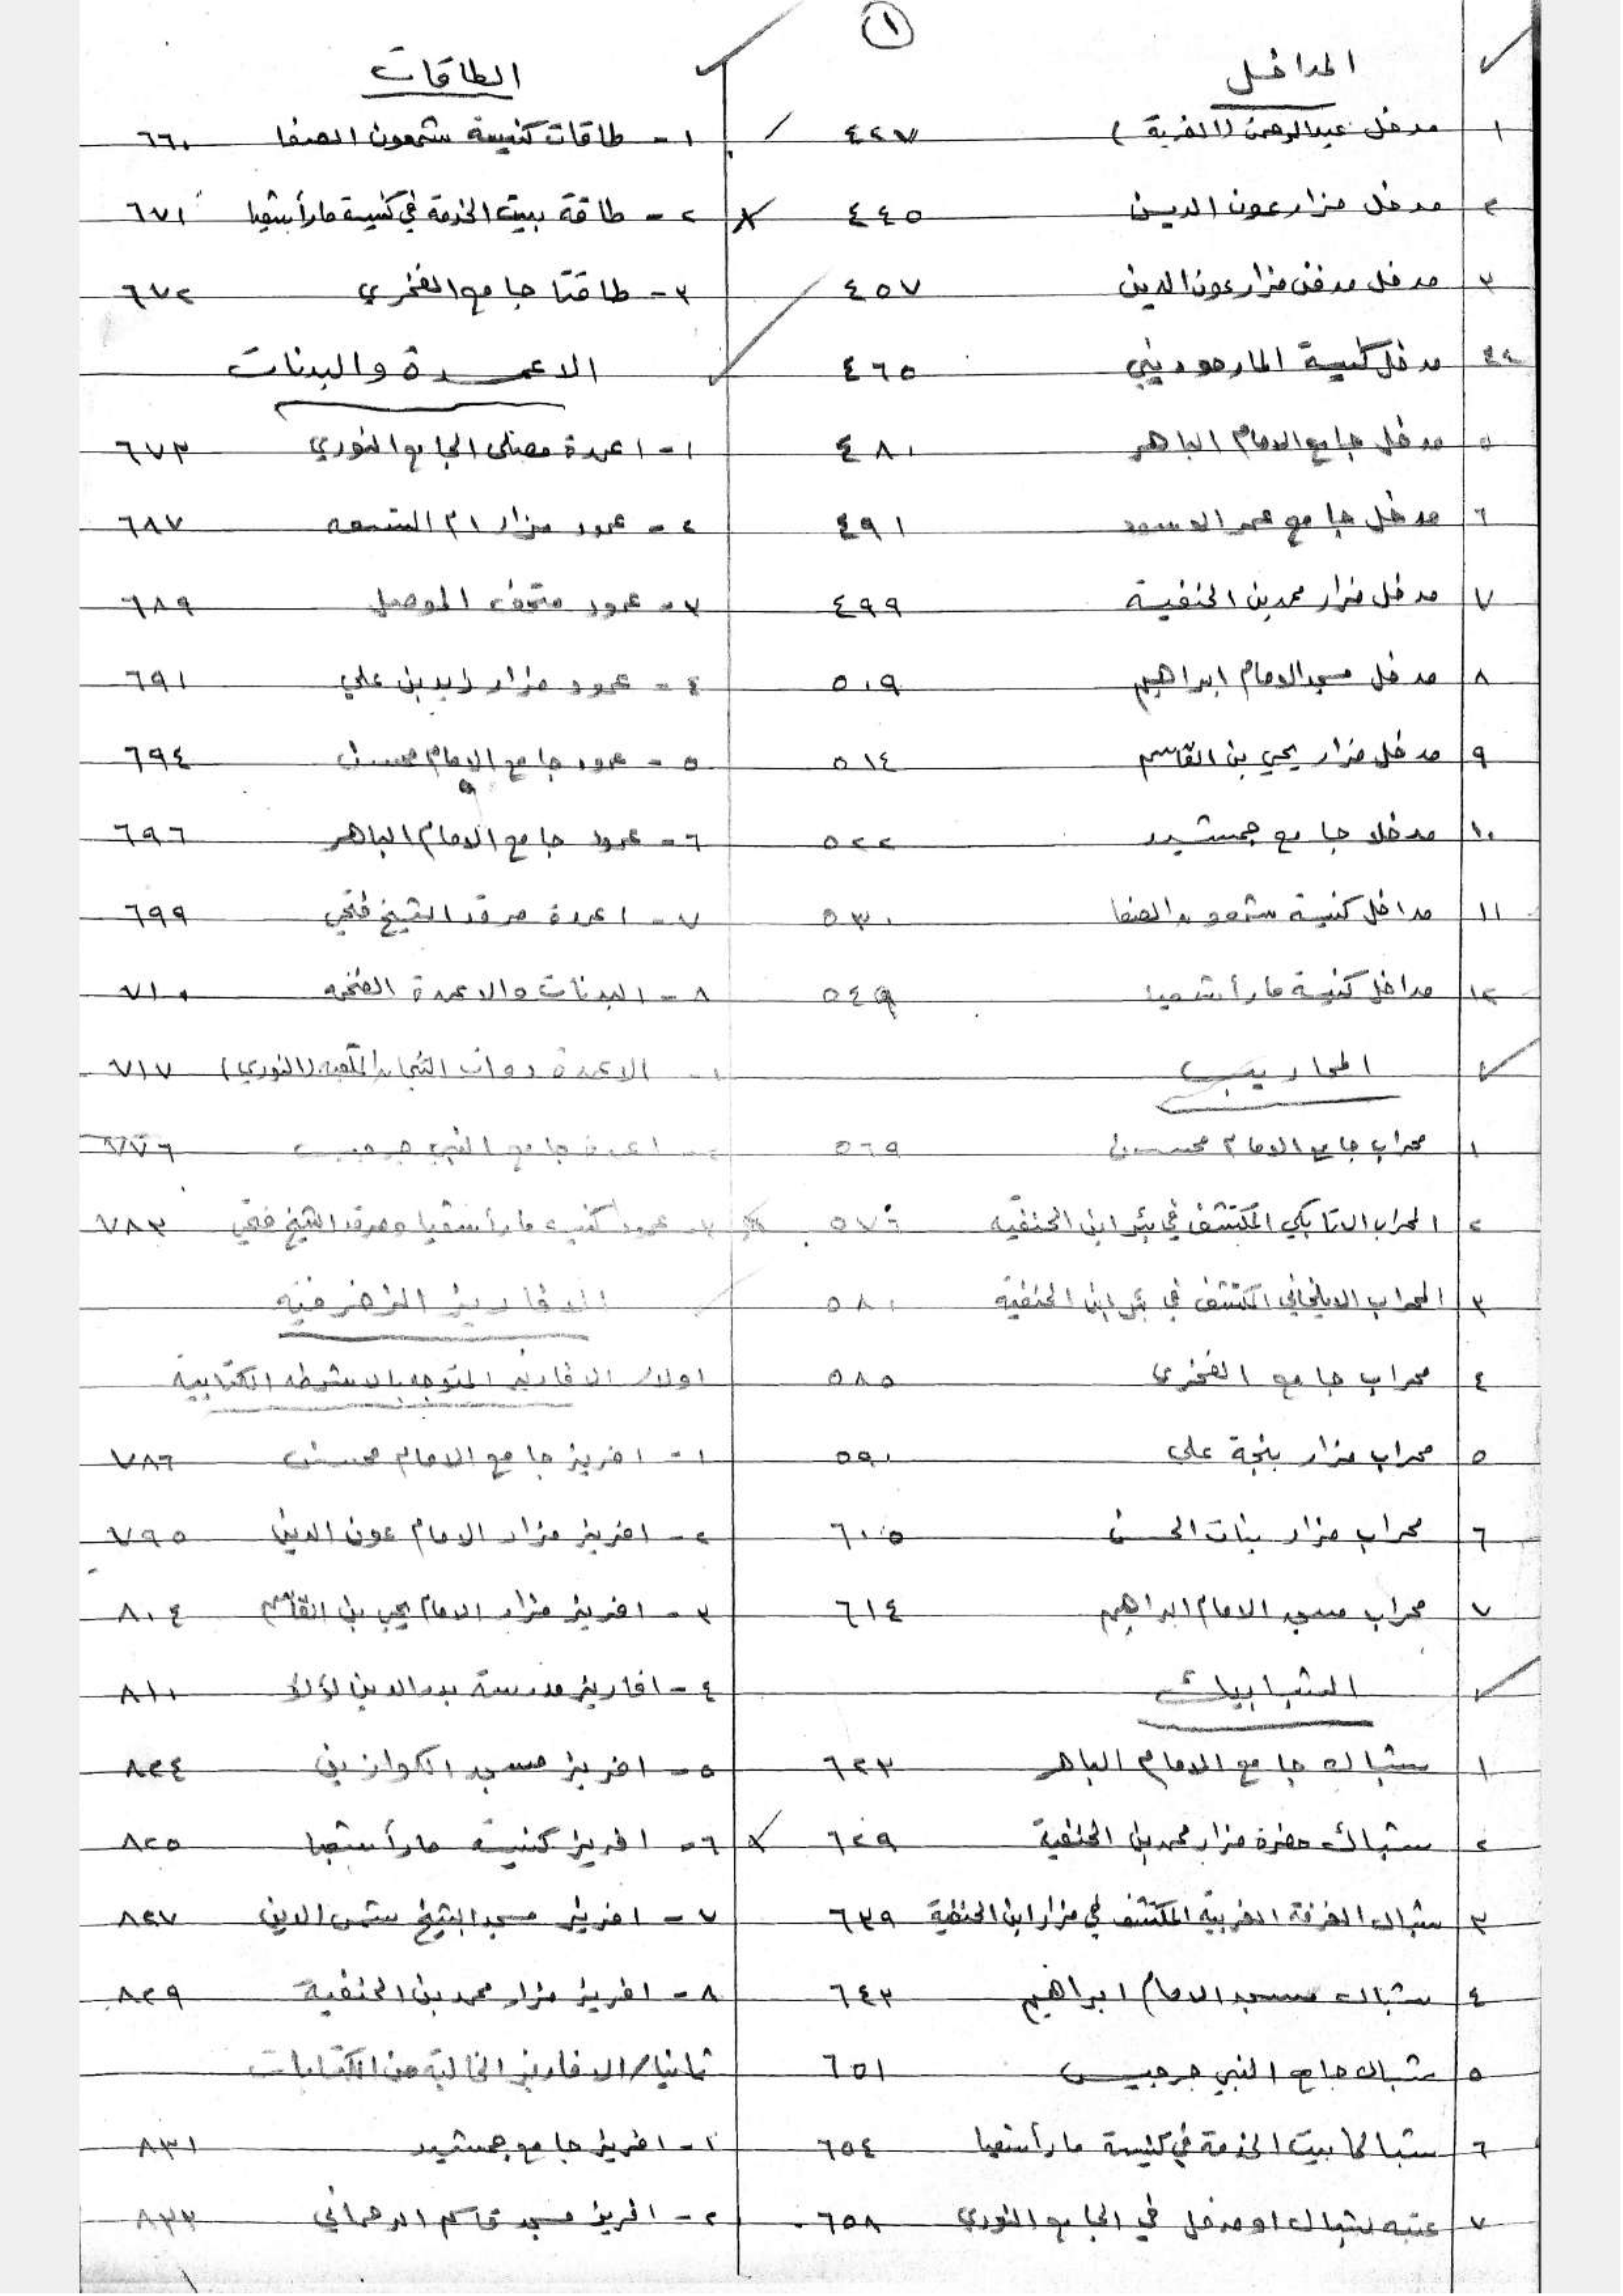 ١
المداخل
١ مدخل عبدالرحمن (الغربة) ٤٢٧
٢ مدخل مزار عون الدين ٤٤٥
٣ مدخل مدفن مزار عون الدين ٤٥٧
٤ مدخل كنيسة المارحوديني ٤٦٥
٥ مدخل جامع الامام الباهر ٤٨٠
٦ مدخل جامع عمر الاسود ٤٩١
٧ مدخل مزار محمد بن الحنفية ٤٩٩
٨ مدخل مسجد الامام ابراهيم ٥٠٩
٩ مدخل مزار يحيى بن القاسم ٥١٤
١٠ مدخلا جامع جمشيد ٥٢٢
١١ مداخل كنيسة شمعون الصفا ٥٣٠
١٢ مداخل كنيسة مار أشعيا ٥٤٩
المحاريب
١ محراب جامع الامام محسن ٥٦٩
٢ المحراب الاتابكي المكتشف في بئر ابن الحنفية ٥٧٦
٣ المحراب الايلخاني المكتشف في بئر ابن الحنفية ٥٨٠
٤ محراب جامع الفخري ٥٨٥
٥ محراب مزار بنجة علي ٥٩٠
٦ محراب مزار بنات الحسن ٦٠٥
٧ محراب مسجد الامام ابراهيم ٦١٤
الشبابيك
١ شباك جامع الامام الباهر ٦٢٣
٢ شباك حضرة مزار محمد بن الحنفية ٦٢٩
٣ شباك الغرفة الغربية المكتشف في مزار ابن الحنفية ٦٣٩
٤ شباك مسجد الامام ابراهيم ٦٤٣
٥ شباك جامع النبي جرجيس ٦٥١
٦ شباكا بيت الخدمة في كنيسة مار أشعيا ٦٥٤
٧ عتبه لشباك او مدخل في الجامع النوري ٦٥٨
الطاقات
١ - طاقات كنيسة شمعون الصفا ٦٦٠
٢ - طاقة بيت الخدمة في كنيسة مار أشعيا ٦٧١
٣ - طاقتا جامع الفخري ٦٧٢
الاعمدة والبدنات
١ - اعمدة مصلى الجامع النوري ٦٧٣
٢ - عمود مزار ام التسعه ٦٨٧
٣ - عمود متحف الموصل ٦٨٩
٤ - عمود مزار زيد بن علي ٦٩١
٥ - عمود جامع الامام محسن ٦٩٤
٦ - عمود جامع الامام الباهر ٦٩٦
٧ - اعمدة مرقد الشيخ فتحي ٦٩٩
٨ - البدنات والاعمدة الضخمه ٧١٠
١ - الاعمدة ذوات التيجان (النوري) ٧١٧
٢ - اعمدة جامع النبي جرجيس ٧٧٦
٣ - عمود كنيسة مار أشعيا ومرقد الشيخ فتحي ٧٨٣
الافاريز الزخرفية
اولا/ الافاريز المتوجه بالاشرطه الكتابية
١ - افريز جامع الامام محسن ٧٨٦
٢ - افريز مزار الامام عون الدين ٧٩٥
٣ - افريز مزار الامام يحيى بن القاسم ٨٠٤
٤ - افاريز مدرسة بدر الدين لؤلؤ ٨١٠
٥ - افريز مسجد الكوازين ٨٢٤
٦ - افريز كنيسة مار أشعيا ٨٢٥
٧ - افريز مسجد الشيخ شمس الدين ٨٢٧
٨ - افريز مزار محمد بن الحنفية ٨٢٩
ثانيا/ الافاريز الخالية من الكتابات
١ - افريز جامع جمشيد ٨٣١
٢ - افريز مسجد قاسم الرحماني ٨٣٣